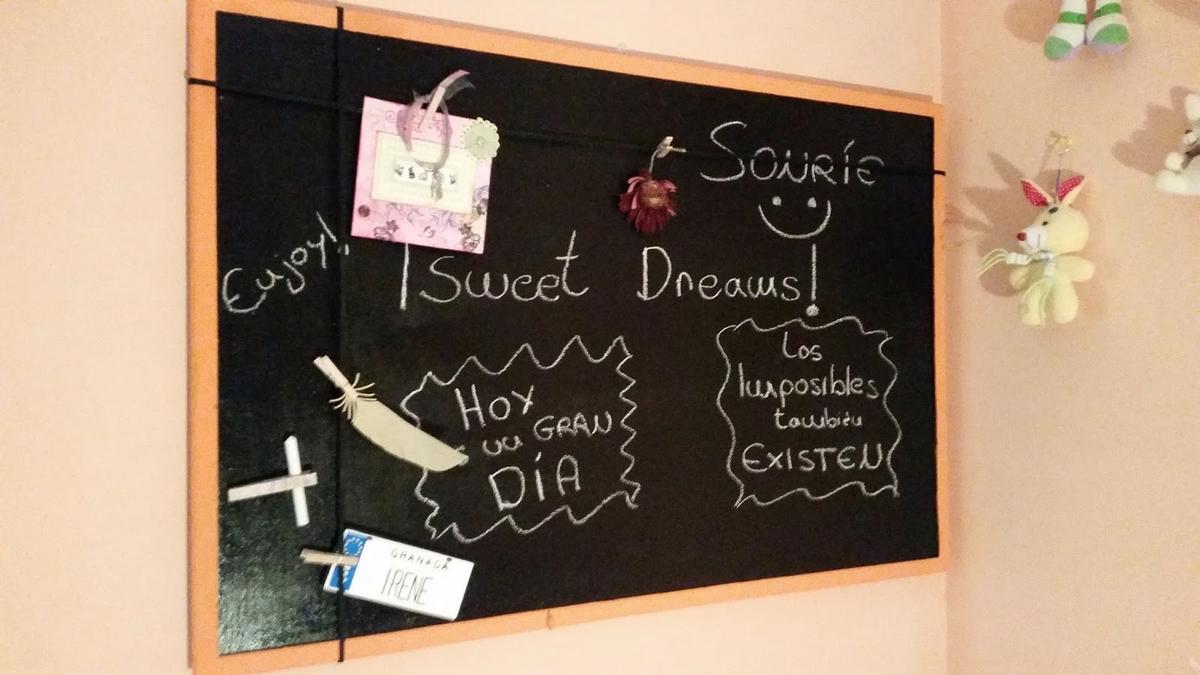 SONRÍE
Enjoy!
¡Sweet Dreams!
HOY
un GRAN
DÍA
Los
Imposibles
también
EXISTEN
GRANADA
IRENE